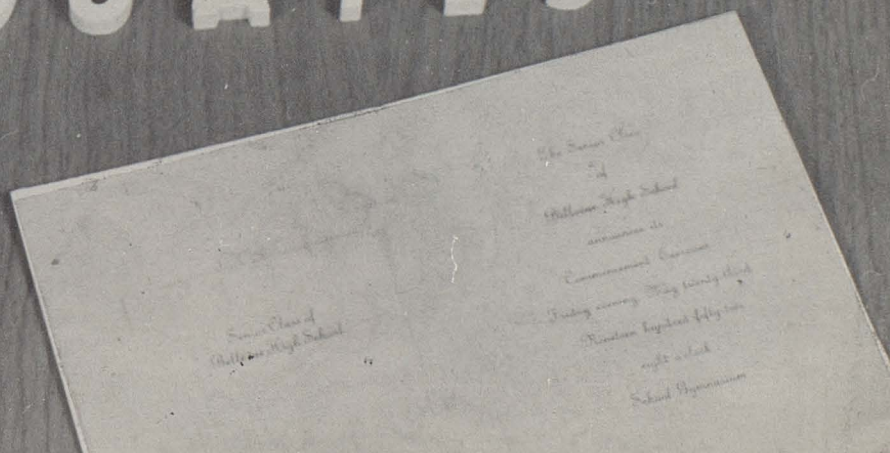 UCATES
Senior Class of
Bellevue High School
The Senior Class
of
Bellevue High School
announces its
Commencement Exercises
Friday evening, May twenty-third
Nineteen hundred fifty-two
eight o'clock
School Gymnasium